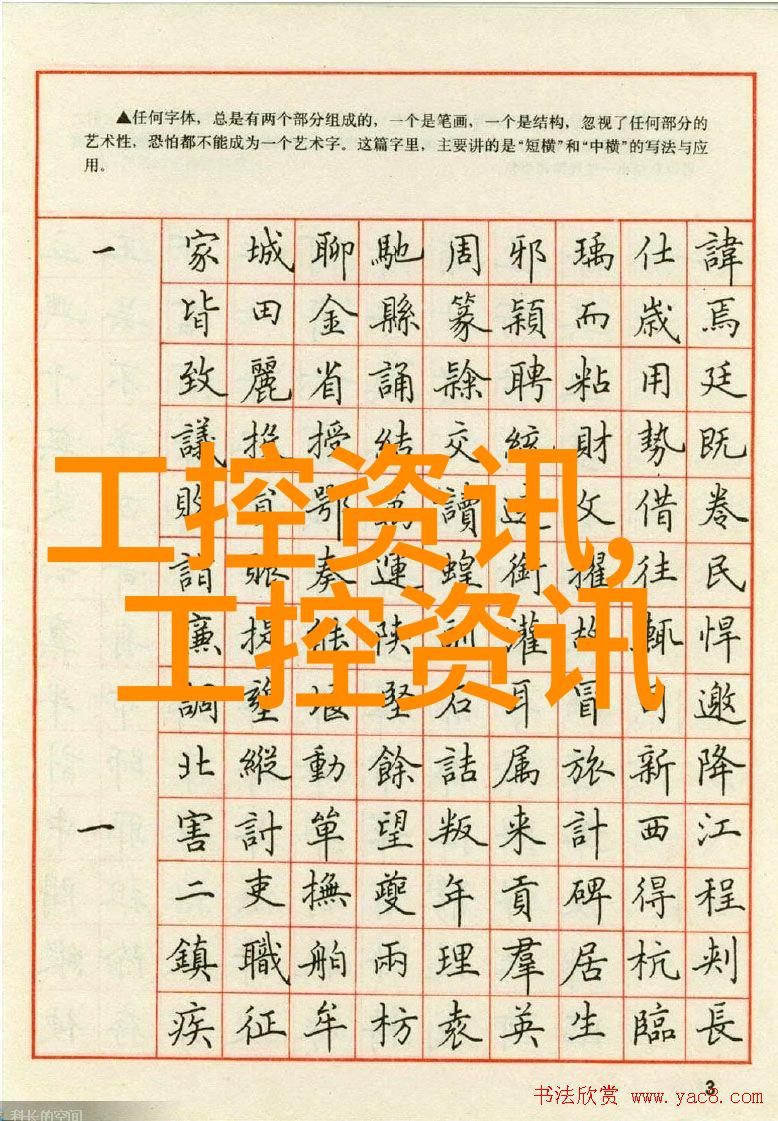 ▲任何字体，总是有两个部分组成的，一个是笔画，一个是结构，忽视了任何部分的
艺术性，恐怕都不能成为一个艺术字。这篇字里，主要讲的是“短横”和“中横”的写法与应
用。
一 家 城 聊 馳 周 邪 瑀 仕 諱
皆 田 金 縣 篆 穎 而 歲 焉
致 麗 省 誦 隸 聘 粘 用 廷
議 授 結 交 統 財 勢 既
鄂 讀 文 借 卷
奏 運 蝗 銜 擢 往 民
廉 提 陝 灌 故 輒 悍
調 堰 堅 石 耳 冒 邀
北 縱 動 餘 詰 属 旅 新 降
一 害 討 單 望 叛 来 計 西 江
二 吏 撫 夔 年 貢 碑 得 程
鎮 職 舶 兩 理 羣 居 杭 刺
疾 征 牟 枋 袁 英 生 臨 長
工控资讯,
工控资讯
3
书法欣赏 www.yac8.com
科长的空间